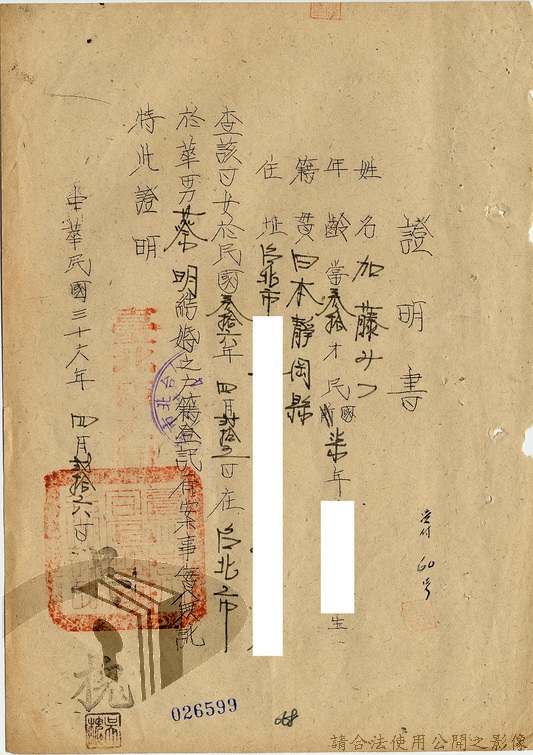 證明書
姓名 加藤みつ
年齡 當叁拾才 民國前柒年 生
籍貫 日本靜岡縣
住址 台北市
查該日女於民國叁拾六年四月貳拾 日在台北市
於華男蔡 明結婚之戶籍登記有案事實無訛
特此證明
中華民國三十六年 四月貳拾六日
受付 60号
026599
068
請合法使用公開之影像